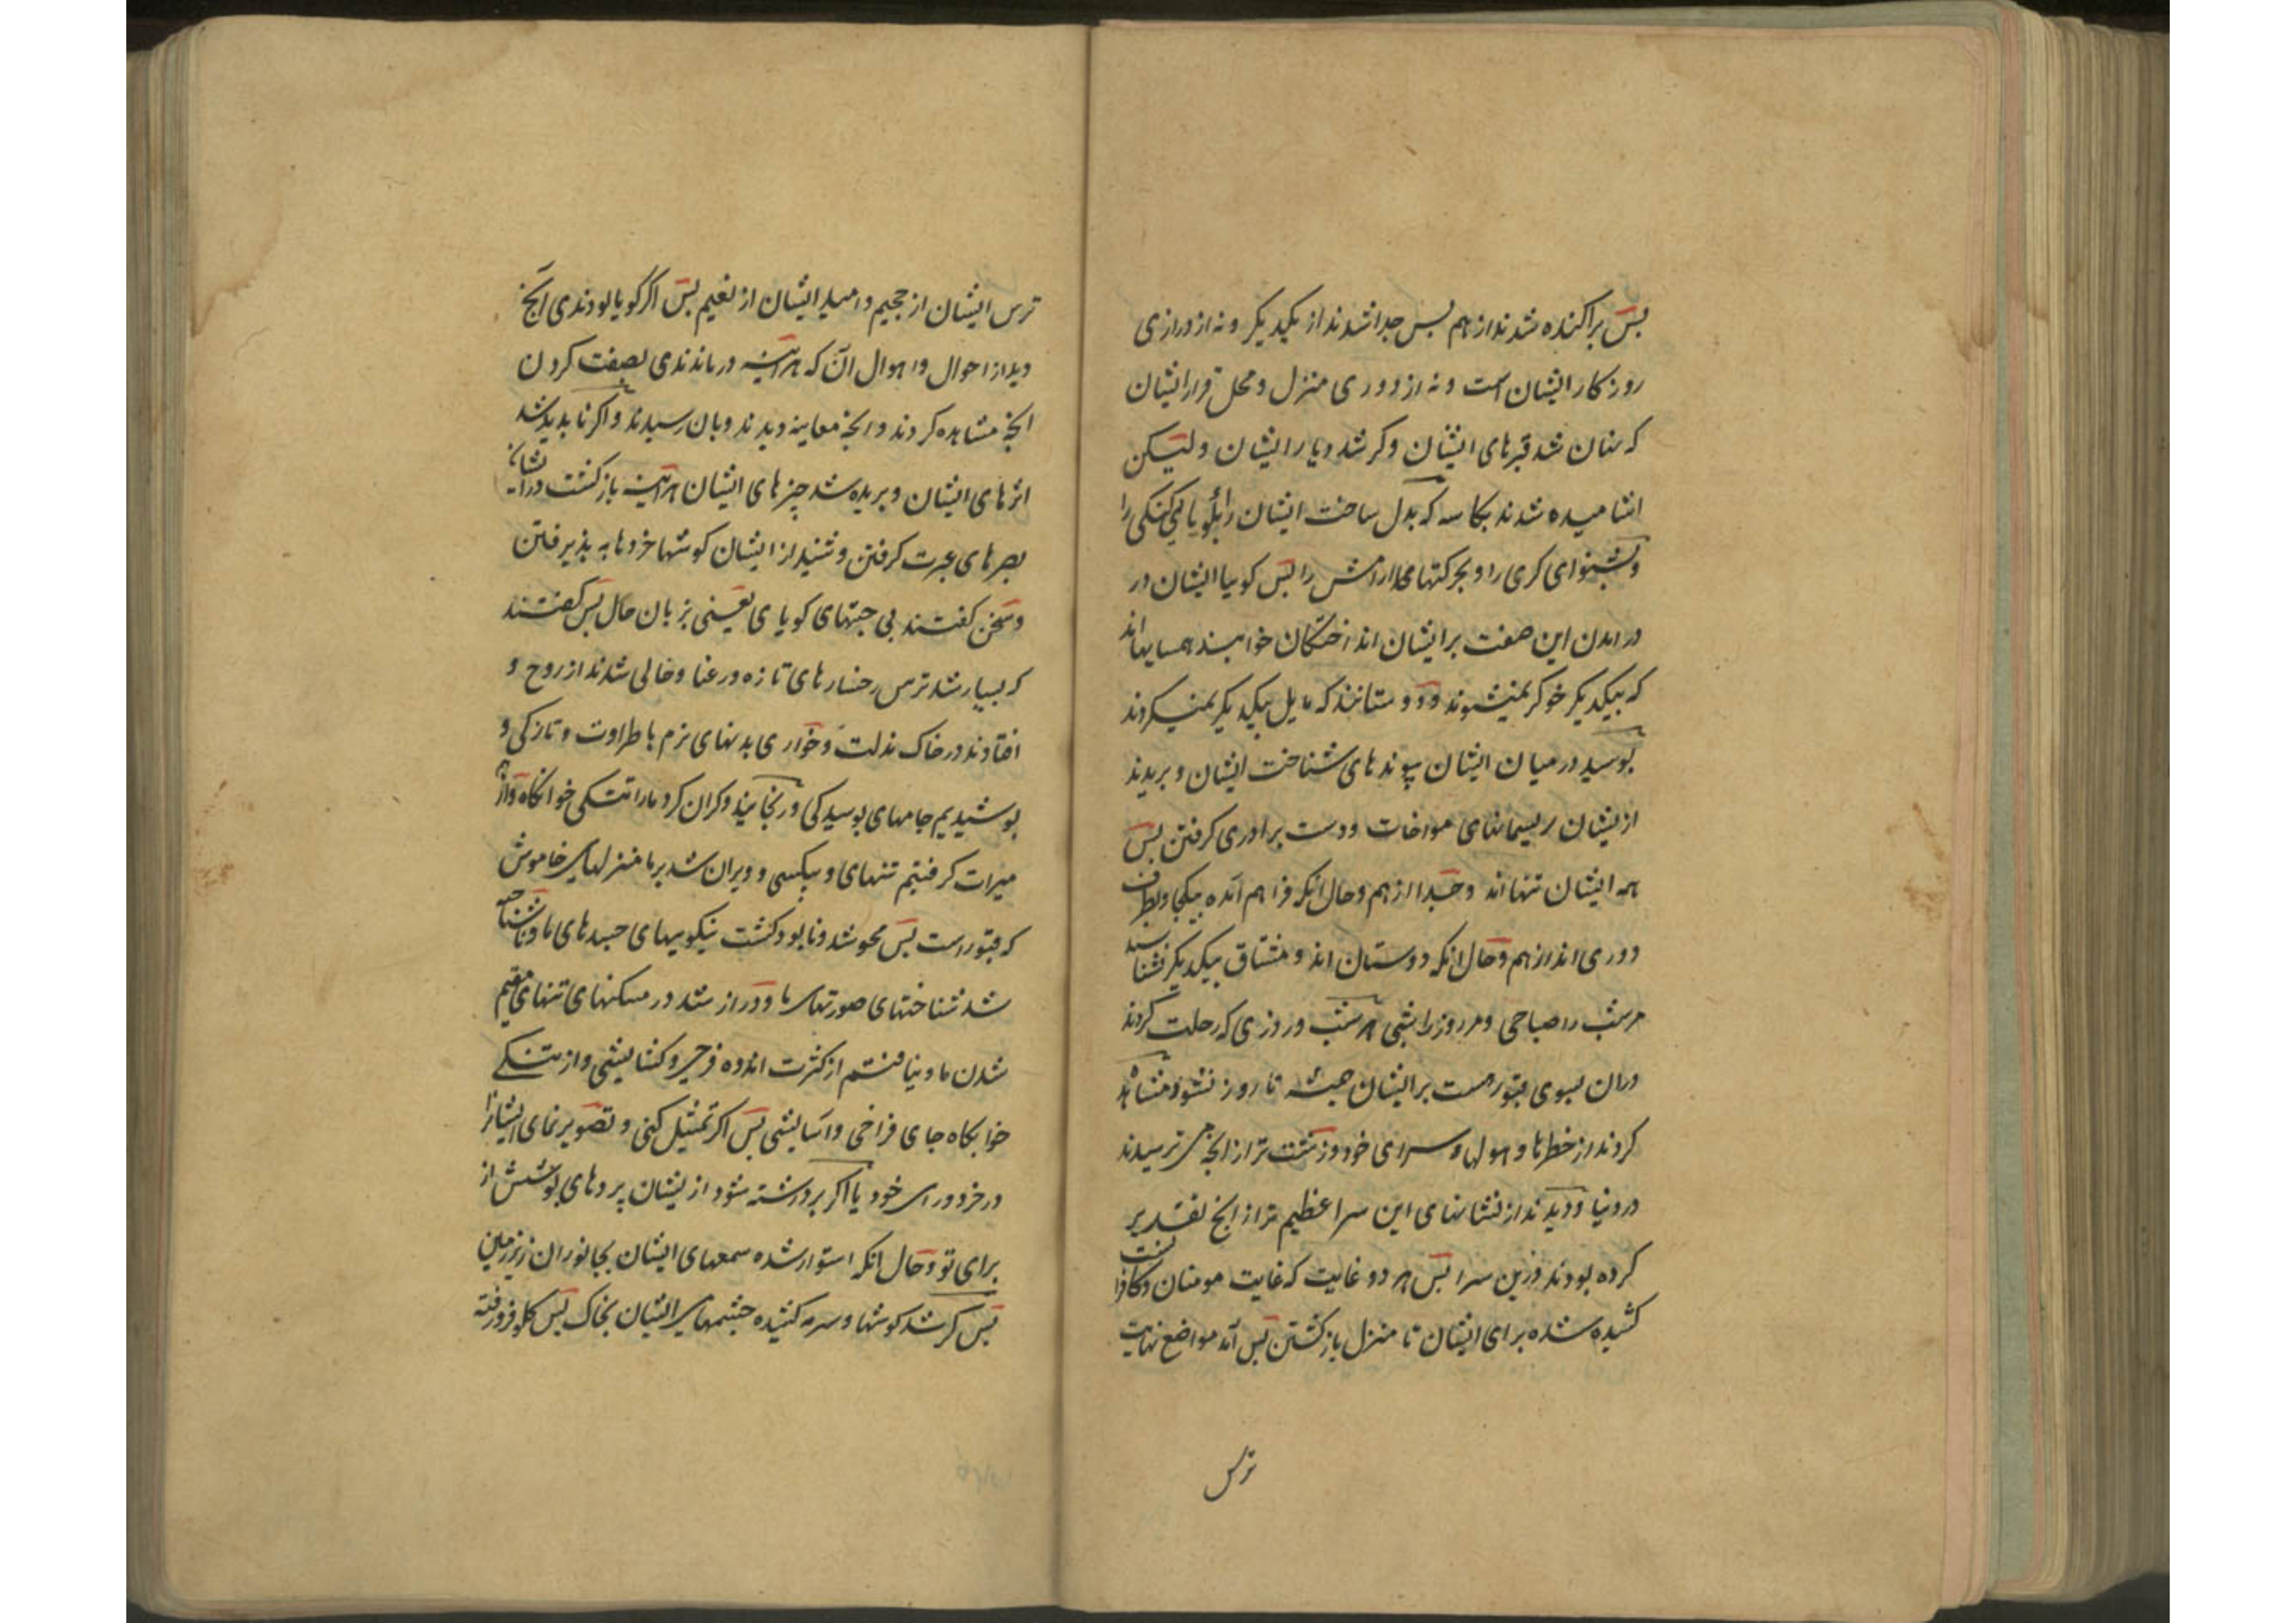 پس پراکنده شدند از هم پس جدا شدند از یکدیکر و نه از درازی
روزکار ایشان است و نه از دوری منزل و محل قرار ایشان
که پنهان شد قبرهای ایشان و کر شد دیار ایشان و لیکن
اشامیده شدند بکاسه که بدل ساخت ایشان را بکویایی کنکی را
و بشنوای کری را و بحرکتهای ارامش را پس کویا ایشان در
در امدن این صفت بر ایشان انداختکان خوابند همسایهااند
که بیکدیکر خوکر نمیشوند و دوستانند که مایل بیکدیکر نمیکردند
پوسید در میان ایشان پیوندهای شناخت ایشان و برید
از ایشان ریسمانهای مواخات و دست برادری کرفتن پس
همه ایشان تنهااند و جدا از هم و حال انکه فراهم آمده بیکجا و بطرف
دوری اند از هم و حال انکه دوستان اند و مشتاق بیکدیکر نشناسند
مر شب را صباحی و مر روز را شبی هر شب و روزی که رحلت کردند
دران بسوی قبور هست بر ایشان همیشه تا روز نشود مشاهده
کردند از خطرها و هولهای سرای خود زشت تر از انچه می ترسیدند
در دنیا و دیدند از نشانهای این سرا عظیم تر از انچه تقدیر
کرده بودند درین سرا پس هر دو غایت که غایت مومنان و کافرا نست
کشیده شده برای ایشان تا منزل بازکشتن پس آمد مواضع نهایت
ترس
ترس ایشان از جحیم و امید ایشان از نعیم پس اکر کویا بودندی آنچ
دید از احوال و اهوال آن که هرآینه درماندندی بصفت کردن
انچه مشاهده کردند و انچه معاینه دیدند و بان رسیدند و اکر ناپدید شد
اثرهای ایشان و بریده شد چیزهای ایشان هرآینه بازکشت در ایشان
بصرهای عبرت کرفتن و شنید از ایشان کوشها خردها به پذیرفتن
و سخن کفتند بی جهتهای کویای یعنی بزبان حال پس کفتند
که بسیار شد ترس رخسارهای تازه و رعنا و خالی شدند از روح و
افتادند در خاک مذلت و خواری بدنهای نرم با طراوت و تازکی و
پوشیدیم جامهای پوسیدکی و رنجانید و کران کرد مارا تنکی خوابکاه و از هم
میراث کرفتیم تنهای و بیکسی و ویران شد بر ما منزلهای خاموش
که قبور است پس محو شد و نابود کشت نیکوییهای جسدهای ما و ناشناخته
شد شناختهای صورتهای ما و دراز شد در مسکنهای تنهای مقیم
شدن ما و نیافتیم از کثرت اندوه فرجی و کشایشی و از تنکی
خوابکاه جای فراخی و آسایشی پس اکر تمثیل کنی و تصویر نمای ایشانرا
در خرد و رای خود یا اکر برداشته شود از ایشان پردهای پوشش از
برای تو و حال انکه استوار شده سمعهای ایشان بجانوران زیر زمین
پس کر شد کوشها و سرمه کشیده چشمهای ایشان بخاک پس بکلو فرورفته